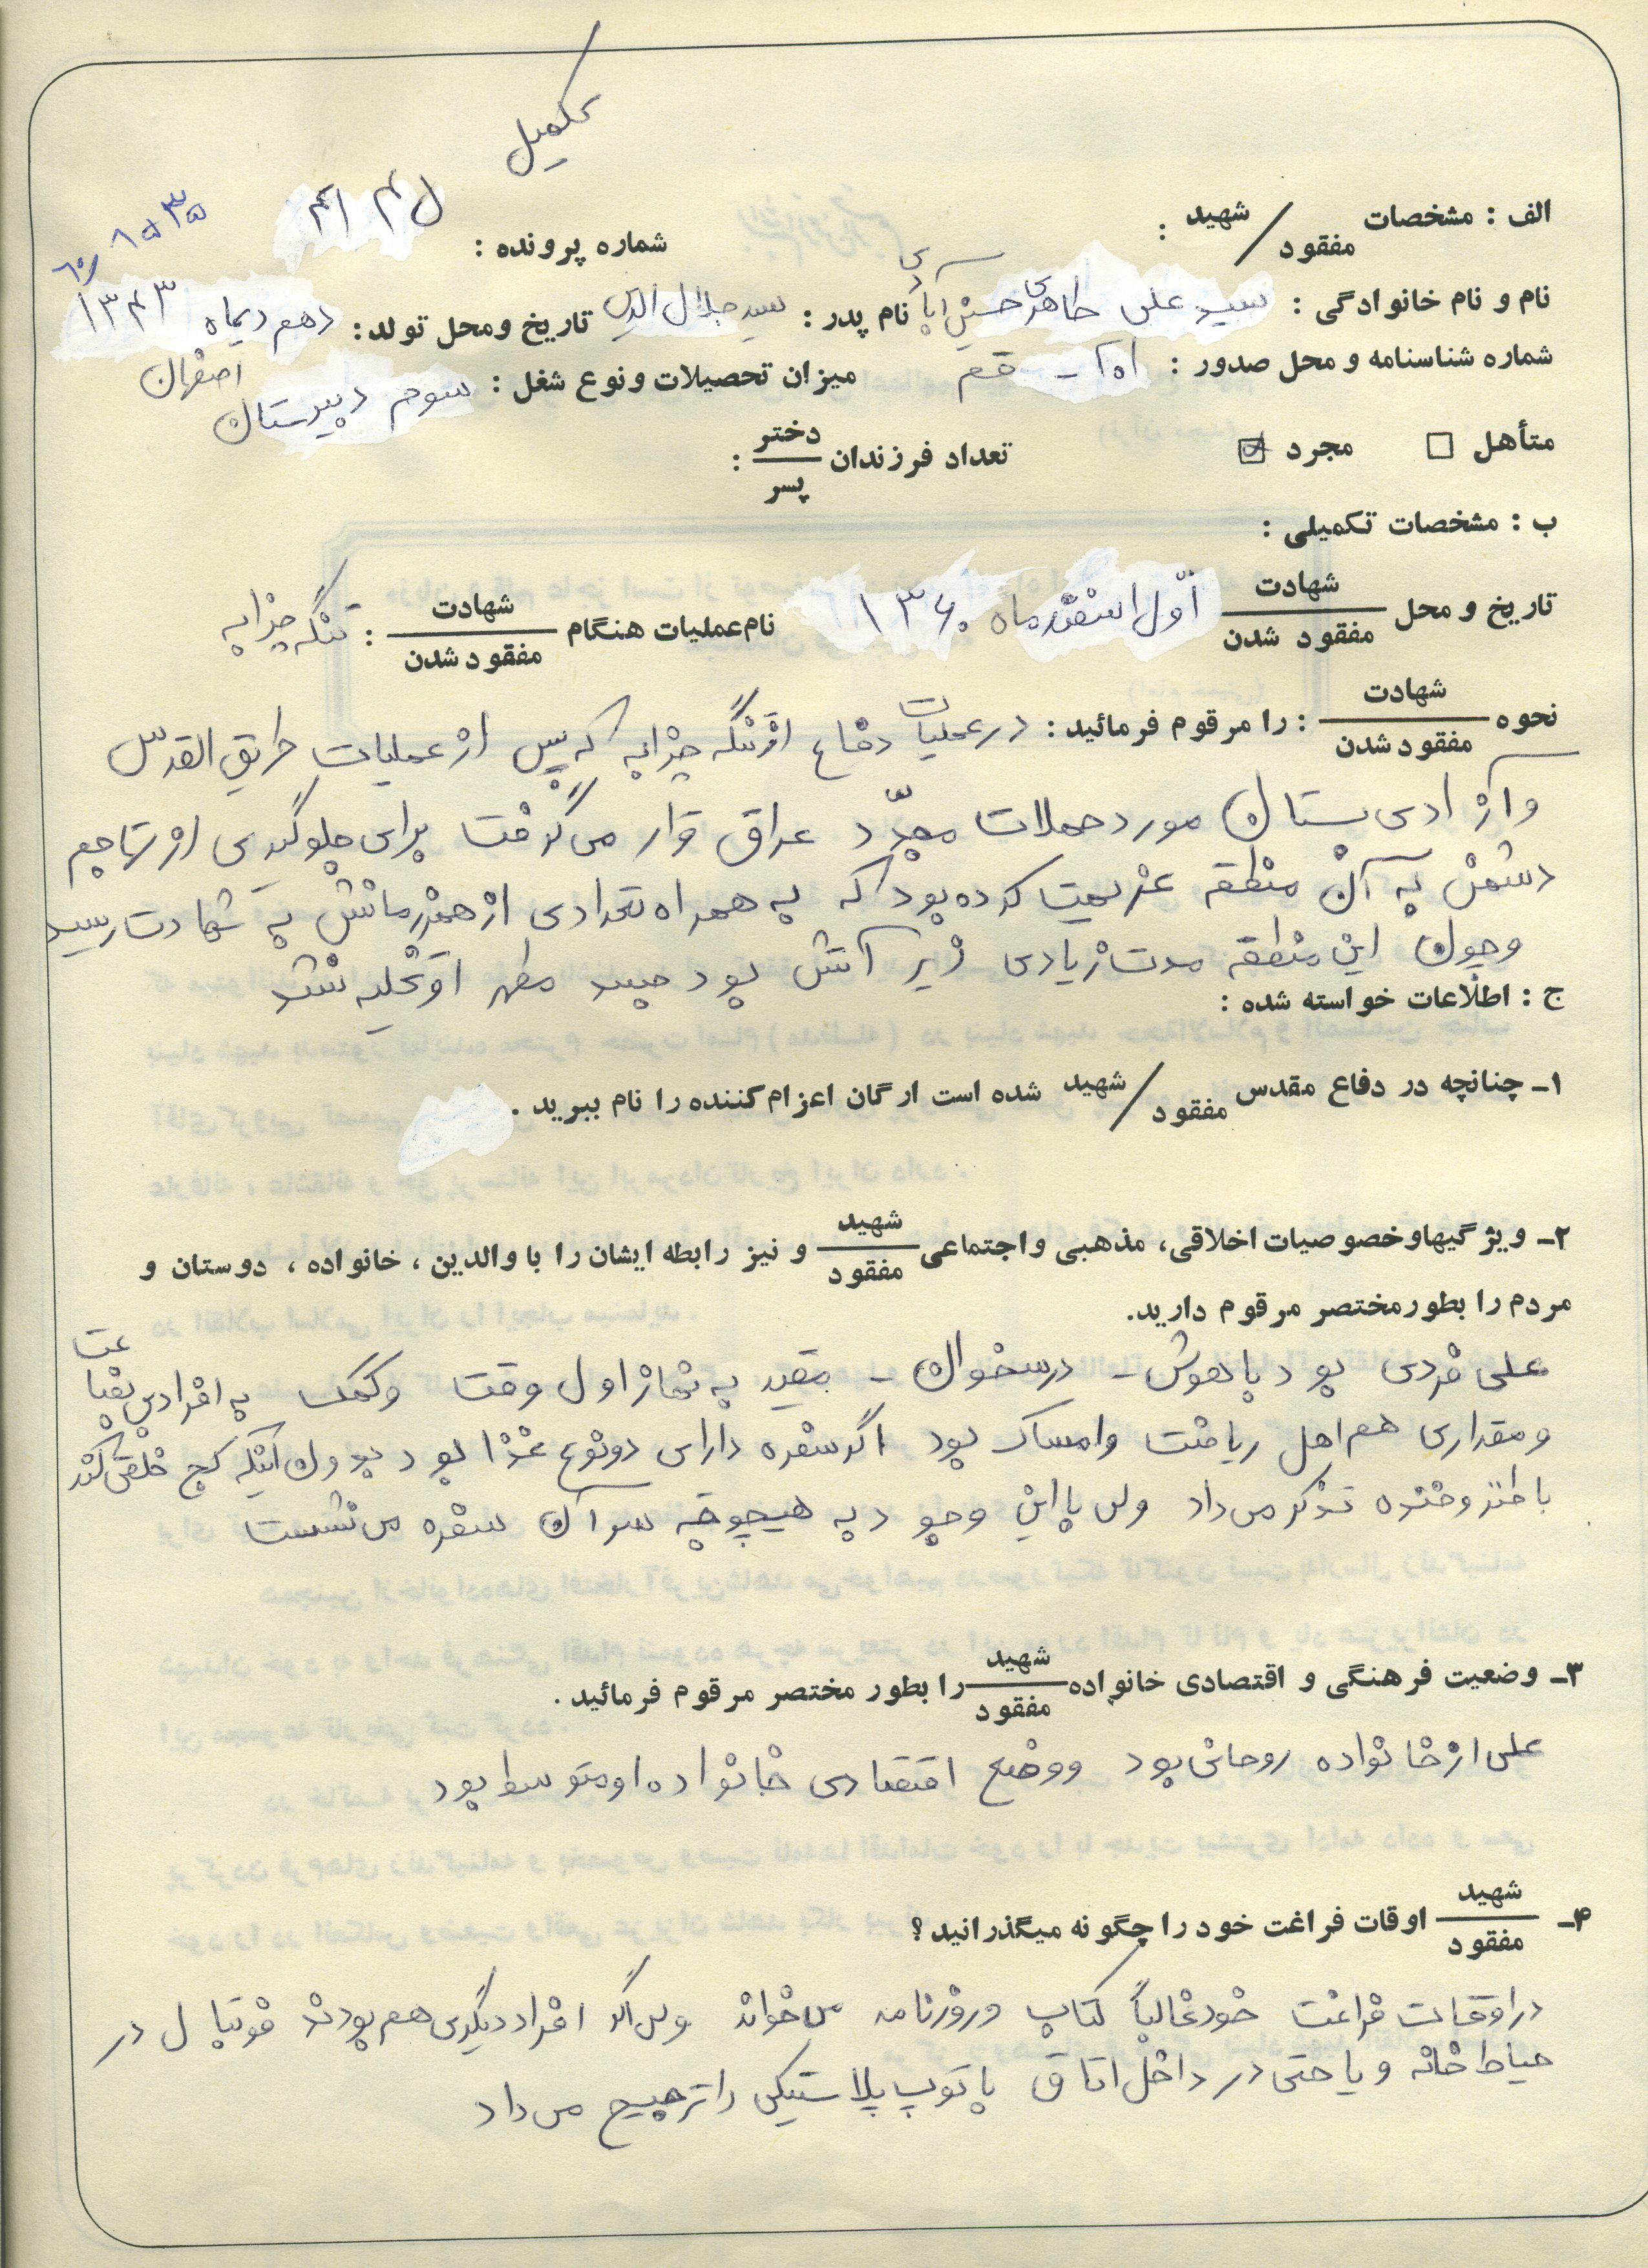 تکمیل
الف : مشخصات شهید / مفقود :
شماره پرونده :
نام و نام خانوادگی : سید علی طاهری حسین آبادی نام پدر : سید جلال الدین تاریخ ومحل تولد : دهم دیماه ۱۳۴۳
اصفهان
شماره شناسنامه و محل صدور : قم میزان تحصیلات ونوع شغل : سوم دبیرستان
متأهل □ مجرد ☑ تعداد فرزندان دختر / پسر :
ب : مشخصات تکمیلی :
تاریخ و محل شهادت / مفقود شدن اوّل اسفندماه ۱۳۶۰ نام عملیات هنگام شهادت / مفقود شدن : تنگه چزابه
نحوه شهادت / مفقود شدن : را مرقوم فرمائید : در عملیات دفاع از تنگه چزابه که پس از عملیات طریق القدس
و آزادی بستان مورد حملات مجدّد عراق قرار می گرفت برای جلوگیری از تهاجم
دشمن به آن منطقه عزیمت کرده بود که به همراه تعدادی از همرزمانش به شهادت رسید
و چون این منطقه مدت زیادی زیر آتش بود جسد مطهر او تخلیه نشد
ج : اطلاعات خواسته شده :
۱- چنانچه در دفاع مقدس شهید / مفقود شده است ارگان اعزام کننده را نام ببرید .
۲- ویژگیهاوخصوصیات اخلاقی، مذهبی واجتماعی شهید / مفقود و نیز رابطه ایشان را با والدین ، خانواده ، دوستان و
مردم را بطورمختصر مرقوم دارید.
علی فردی بود باهوش - درسخوان - مقید به نماز اول وقت و کمک به افراد بی بضاعت
و مقداری هم اهل ریاضت و امساک بود اگر سفره دارای دو نوع غذا بود بدون اینکه کج خلقی کند
با طنز و خنده تذکر می داد ولی با این وجود به هیچوجه سر آن سفره می نشست
۳- وضعیت فرهنگی و اقتصادی خانواده شهید / مفقود را بطور مختصر مرقوم فرمائید .
علی از خانواده روحانی بود و وضع اقتصادی خانواده او متوسط بود
۴- شهید / مفقود اوقات فراغت خود را چگونه میگذرانید ؟
در اوقات فراغت خود غالباً کتاب و روزنامه می خواند ولی اگر افراد دیگری هم بودند فوتبال در
حیاط خانه و یا حتی در داخل اتاق با توپ پلاستیکی را ترجیح می داد